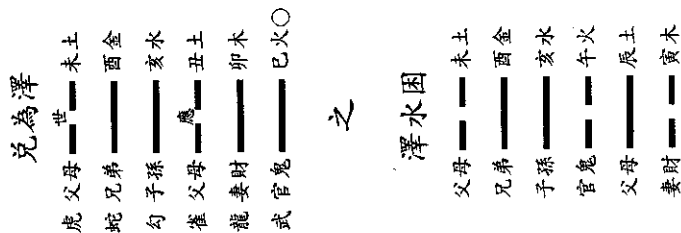 兌為澤
虎父母 世 未土
蛇兄弟 酉金
勾子孫 亥水
雀父母 應 丑土
龍妻財 卯木
武官鬼 巳火○
之
澤水困
父母 未土
兄弟 酉金
子孫 亥水
官鬼 午火
父母 辰土
妻財 寅木